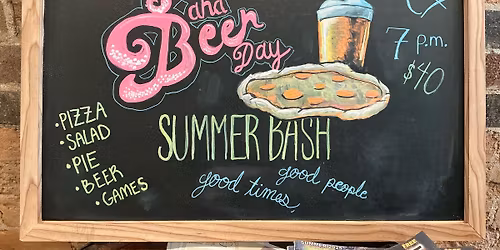 and
Beer
Day
7 p.m.
$40
• PIZZA
• SALAD
• PIE
• BEER
• GAMES
SUMMER BASH
good times,
good people